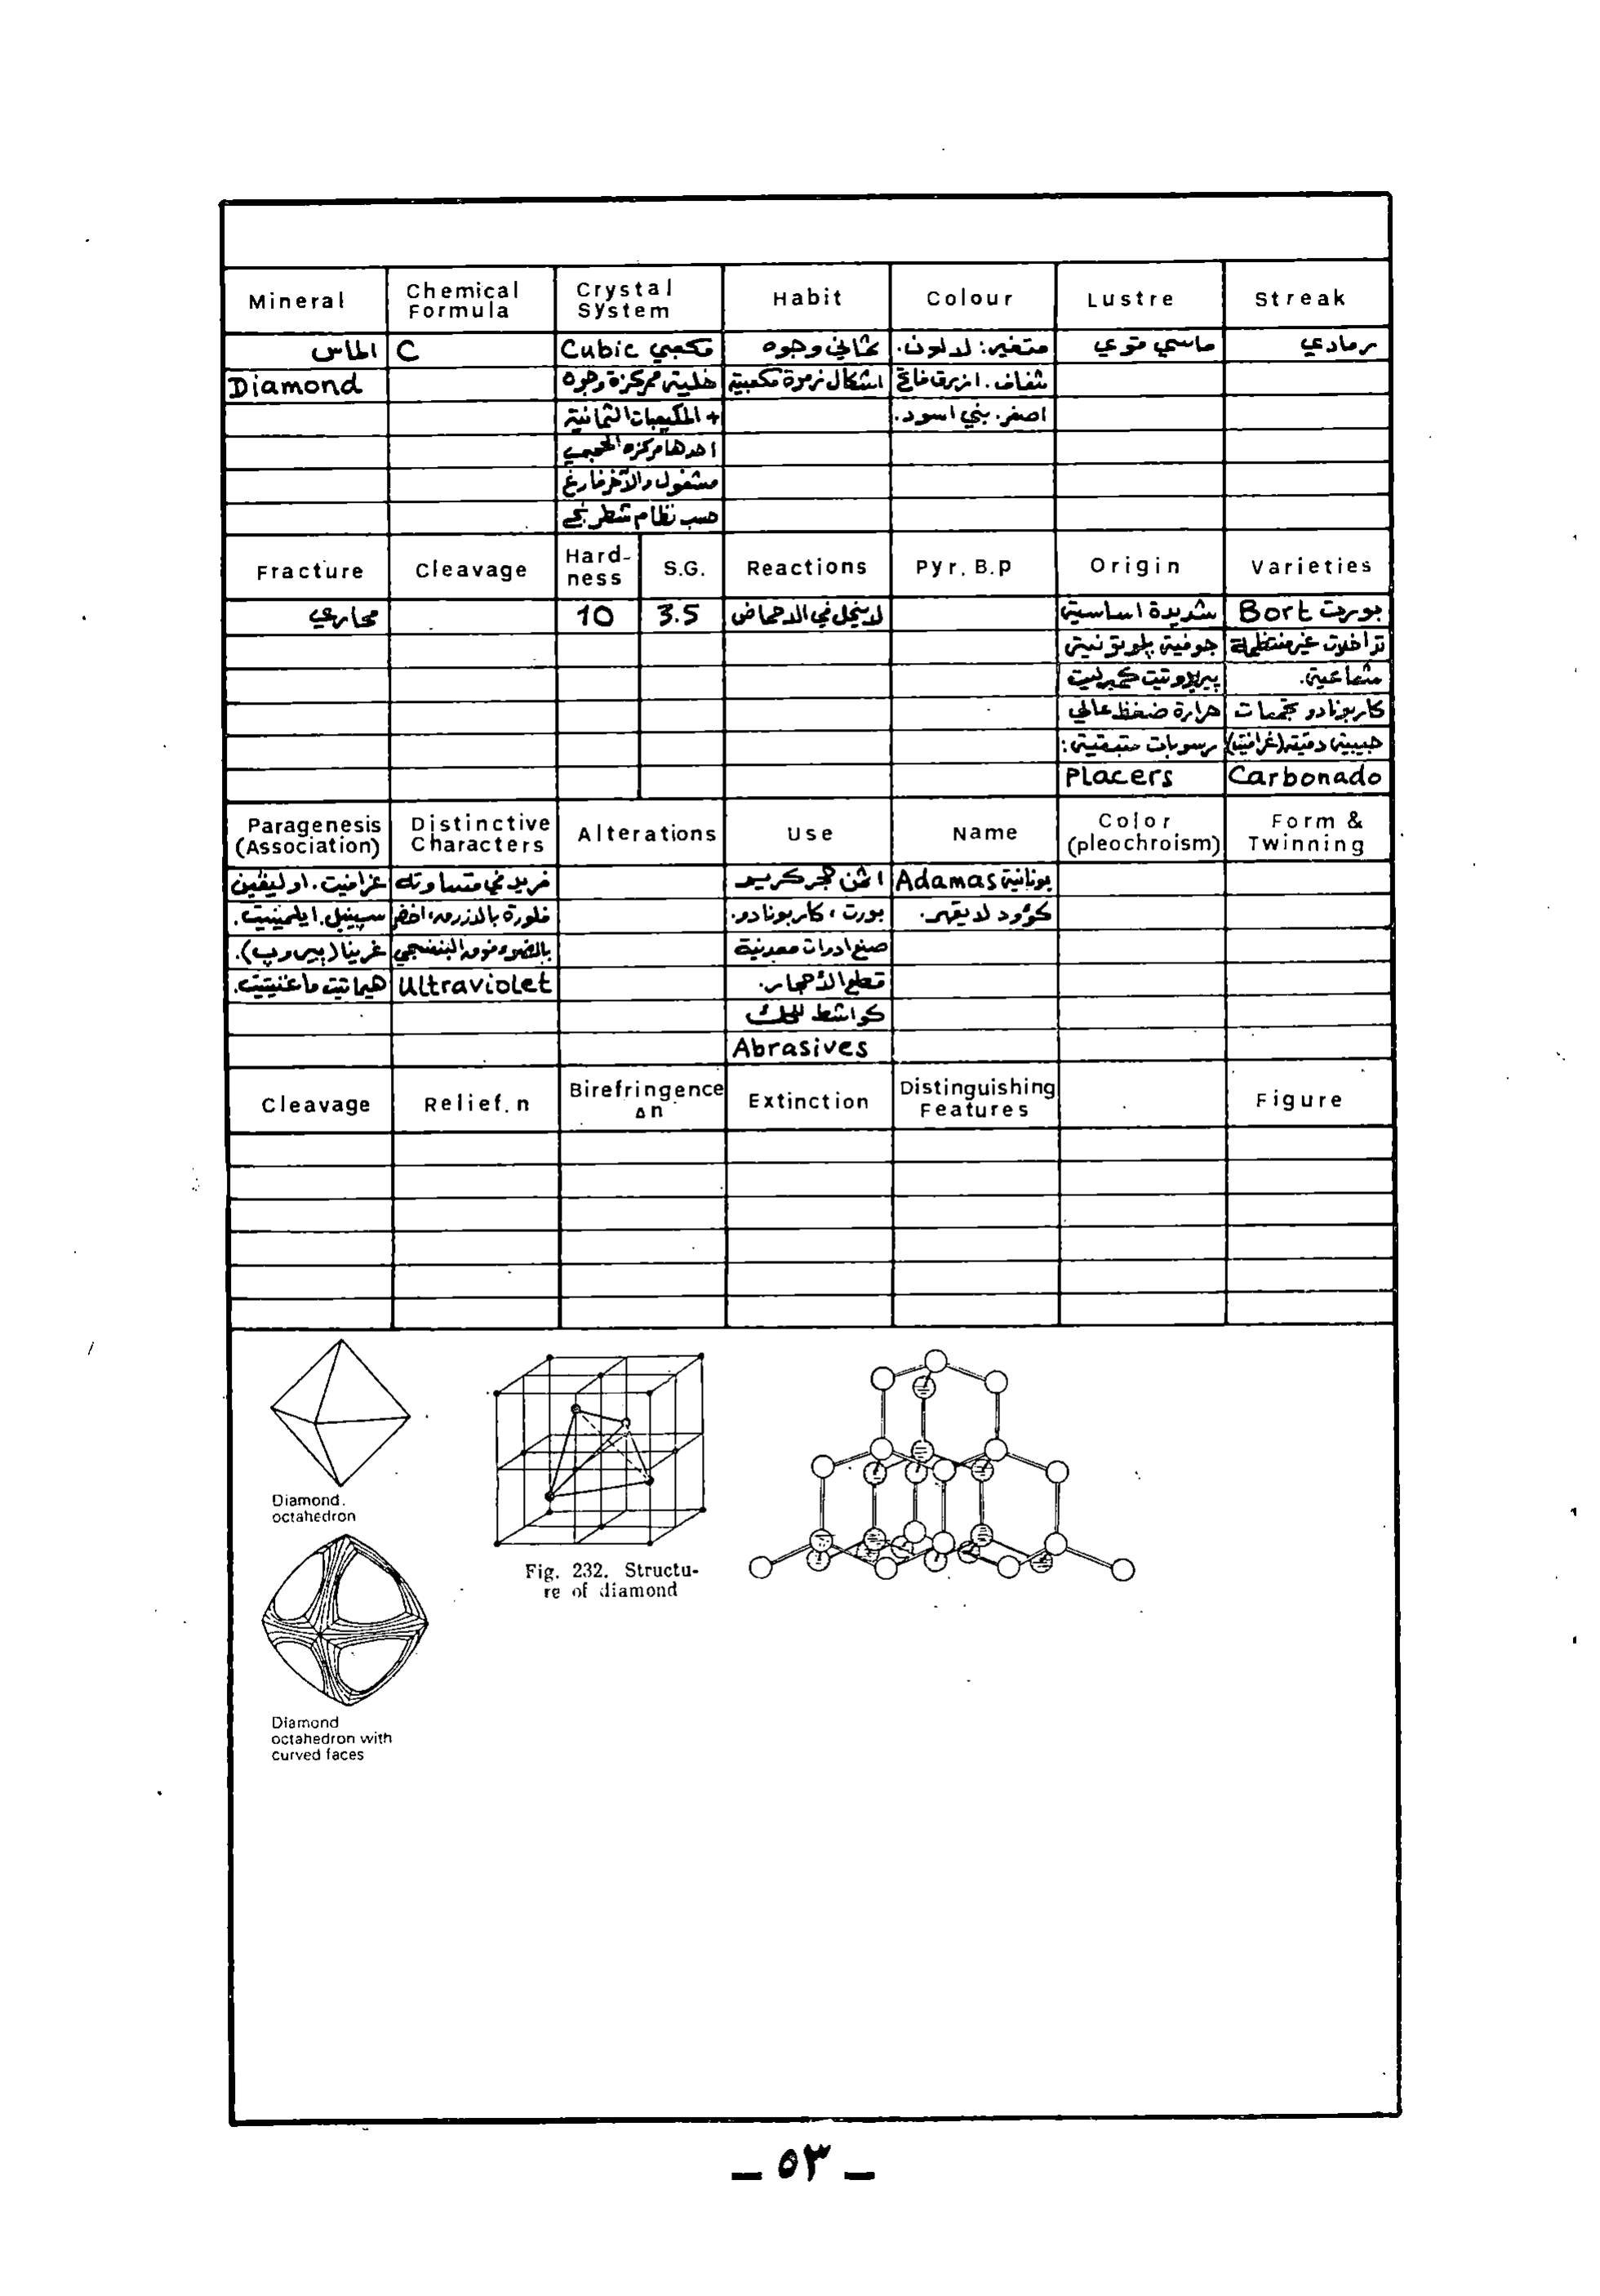 Mineral	Chemical Formula	Crystal System	Habit	Colour	Lustre	Streak
الماس	C	Cubic مكعبي	ثماني وجوه	متغير: لا لون.	ماسي قوي	رمادي
Diamond	خلية ممركزة وجوه	اشكال زمرة مكعبية	شفاف. ازرق فاتح
+ المكيعبات الثمانية	اصفر. بني اسود.
احدها مركزه الحجمي
مشغول والآخر فارغ
حسب نظام شطرنجي
Fracture	Cleavage	Hard-ness	S.G.	Reactions	Pyr. B.p	Origin	Varieties
محاري	10	3.5	لا ينحل في الاحماض	شديدة اساسية	بورت Bort
جوفية پلوتونية	تداخلات غير منتظمة
پيريدوتيت كمبرليت	شعاعية.
حرارة ضغط عالي	كاربونادو تجمعات
رسوبات متبقية:	حبيبية دقيقة (غرافيت)
Placers	Carbonado
Paragenesis (Association)	Distinctive Characters	Alterations	Use	Name	Color (pleochroism)	Form & Twinning
غرافيت. اوليفين	فريد في قساوته	اثمن حجر كريم	يونانية Adamas
سپينيل. ايلمينيت.	فلورة بالازرق، اخضر	بورت، كاربونادو.	كؤود لا يقهر.
غرينا (پيروپ).	بالضوء فوق البنفسجي	صنع ادوات معدنية
هيماتيت ماغنيتيت.	Ultraviolet	قطع الأحجار.
كواشط للحك
Abrasives
Cleavage	Relief. n	Birefringence Δn	Extinction	Distinguishing Features	Figure
Diamond.
octahedron
Fig. 232. Structu-
re of diamond
Diamond
octahedron with
curved faces
— ٥٣ —